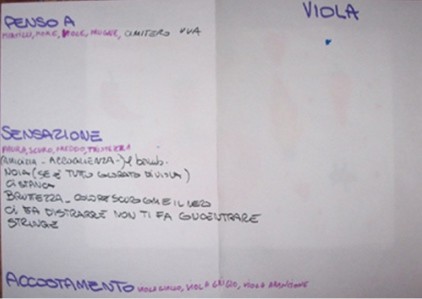 PENSO A
VIOLA
MIRTILLI, MORE, VIOLE, PRUGNE, CIMITERO UVA
SENSAZIONE
PAURA, SCURO, FREDDO, TRISTEZZA
ACCOGLIENZA
NOIA (SE È TUTTO COLORATO DI VIOLA)
CI STANCA
BRUTTEZZA - COLORE SCURO COME IL NERO
CI FA DISTRARRE NON TI FA CONCENTRARE
STRINGE
ACCOSTAMENTO VIOLA GIALLO, VIOLA GRIGIO, VIOLA ARANCIONE